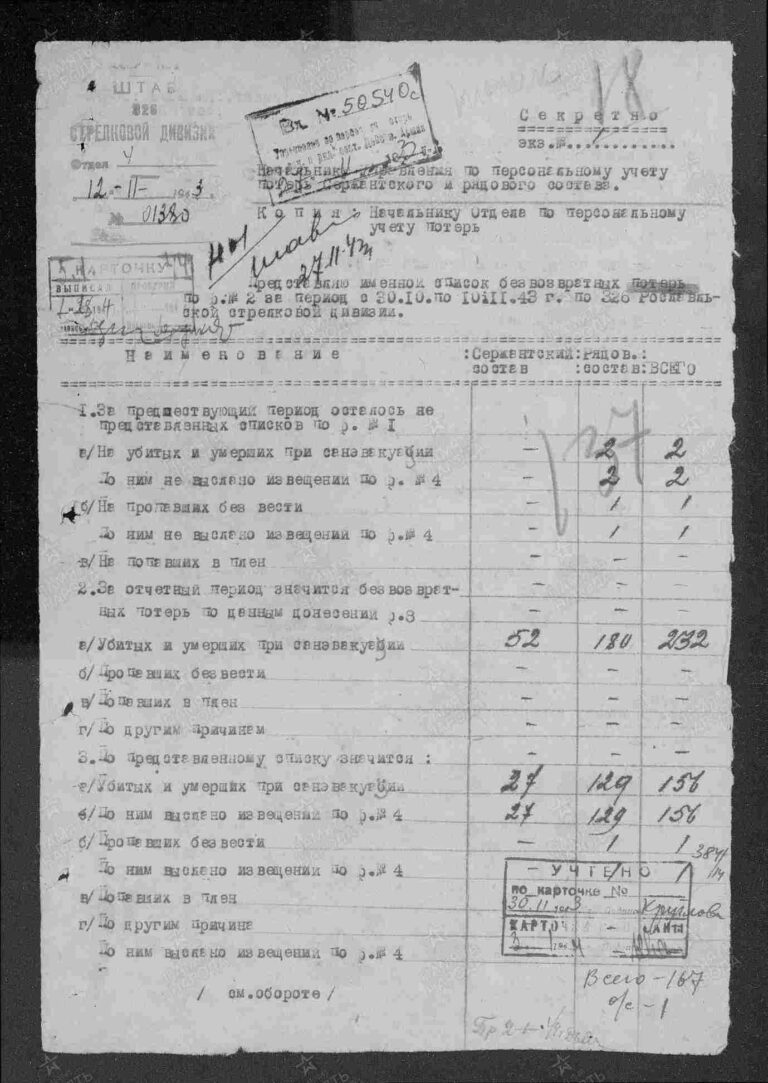 ШТАБ
326
СТРЕЛКОВОЙ ДИВИЗИИ
Отдел 4
12-II-1943.
№ 01380
Вх № 50540с
Секретно
экз.№ 1
Начальнику Управления по персональному учету
потерь Сержантского и рядового состава.
Копия: Начальнику Отдела по персональному
учету потерь
27.11.43
КАРТОЧКУ
ВЫПИСАЛ
Представляю именной список безвозвратных потерь
по ф.№ 2 за период с 30.10.по 10й11.43 г. по 326 Рославль-
ской стрелковой дивизии.
Наименование :Сержантский:Рядов.:
состав :состав:ВСЕГО
1.За предшествующий период осталось не
представленных списков по ф.№ I
а/На убитых и умерших при санэвакуации - 2 2
По ним не выслано извещений по ф. № 4 - 2 2
б/На пропавших без вести - 1 1
По ним не выслано извещений по ф.№ 4 - 1 1
в/На попавших в плен - - -
2.За отчетный период значится безвозврат-
ных потерь по данным донесений ф.3 - - -
а/Убитых и умерших при санэвакуации 52 180 232
б/Пропавших безвести - - -
в/Попавших в плен - - -
г/По другим причинам - - -
3.По представленному списку значится : - - -
а/Убитых и умерших при санэвакуации 27 129 156
в/По ним выслано извещений по ф.№ 4 27 129 156
б/Пропавших безвести - 1 1
По ним выслано извещений по ф.№ 4
в/Попавших в плен
г/По другим причина
По ним выслано извещений по ф.№ 4
УЧТЕНО
по карточке №
30.11 1943 Круглова
Всего-167
о/с-1
/ см.обороте/